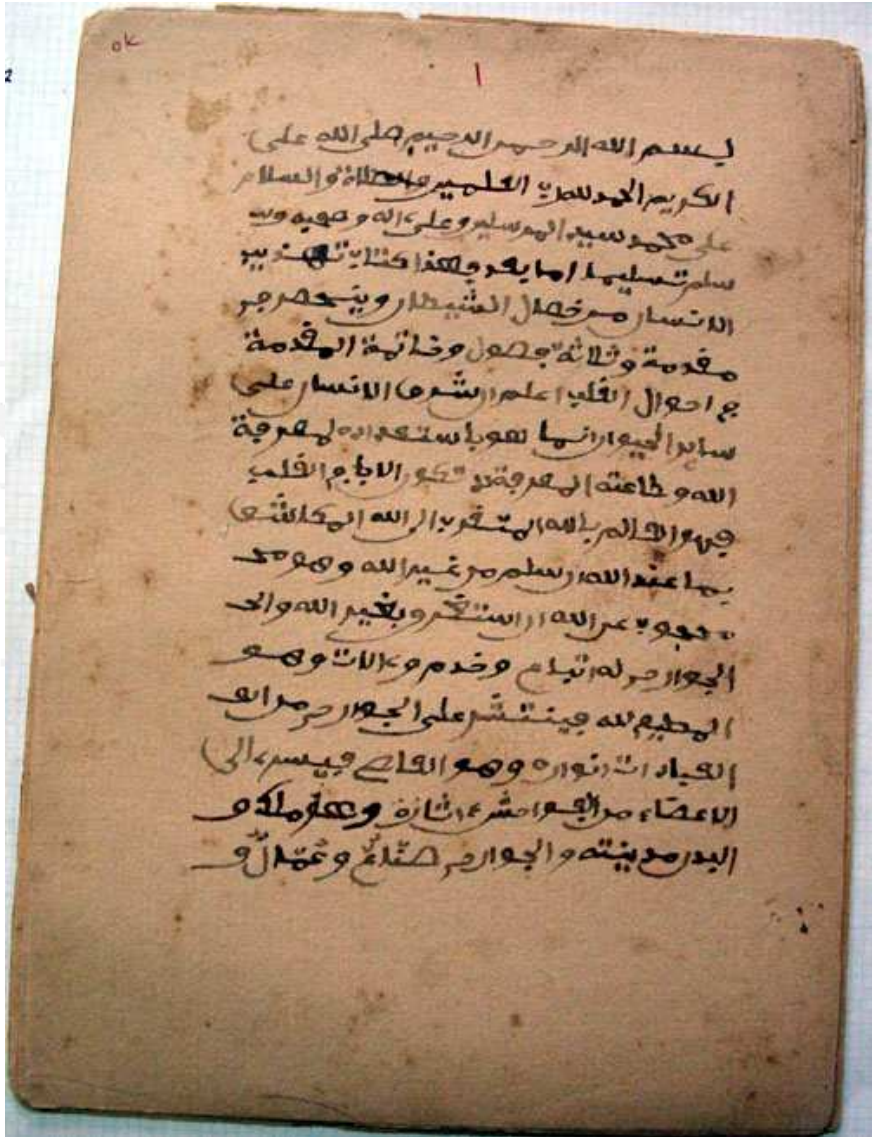 ok
1
2
بسم الله الرحمن الرحيم صلى الله على
الكريم الحمد لله رب العلمين والصلاة والسلام
على محمد سيد المرسلين وعلى ءاله وصحبه وسـ
سلم تسليما اما بعد فهذا كتاب تهذيب
الانسان من خصال الشيطان وينحصر في
مقدمة وثلاثة فصول وخاتمة المقدمة
في احوال القلب اعلم ان شرف الانسان على
ساير الحيوان انما هو باستعداده لمعرفة
الله وطاعته المعرفة لا تكون الا في القلب
فهو العالم بالله المتقرب الى الله المكاشف
بما عند الله ان سلم من غير الله وهو محـ
محجوب عن الله ان استغرق بغير الله وانـ
الجوارح له اتباع وخدم وءالات وهو
المطيع لله فينتشر على الجوارح من
العبادات انواره وهو العاصي فيسر الى
الاعضاء من الفواحش ءاثاره وهو ملك و
البدن مدينته والجوارح صناعٌ وعُمّالٌ و